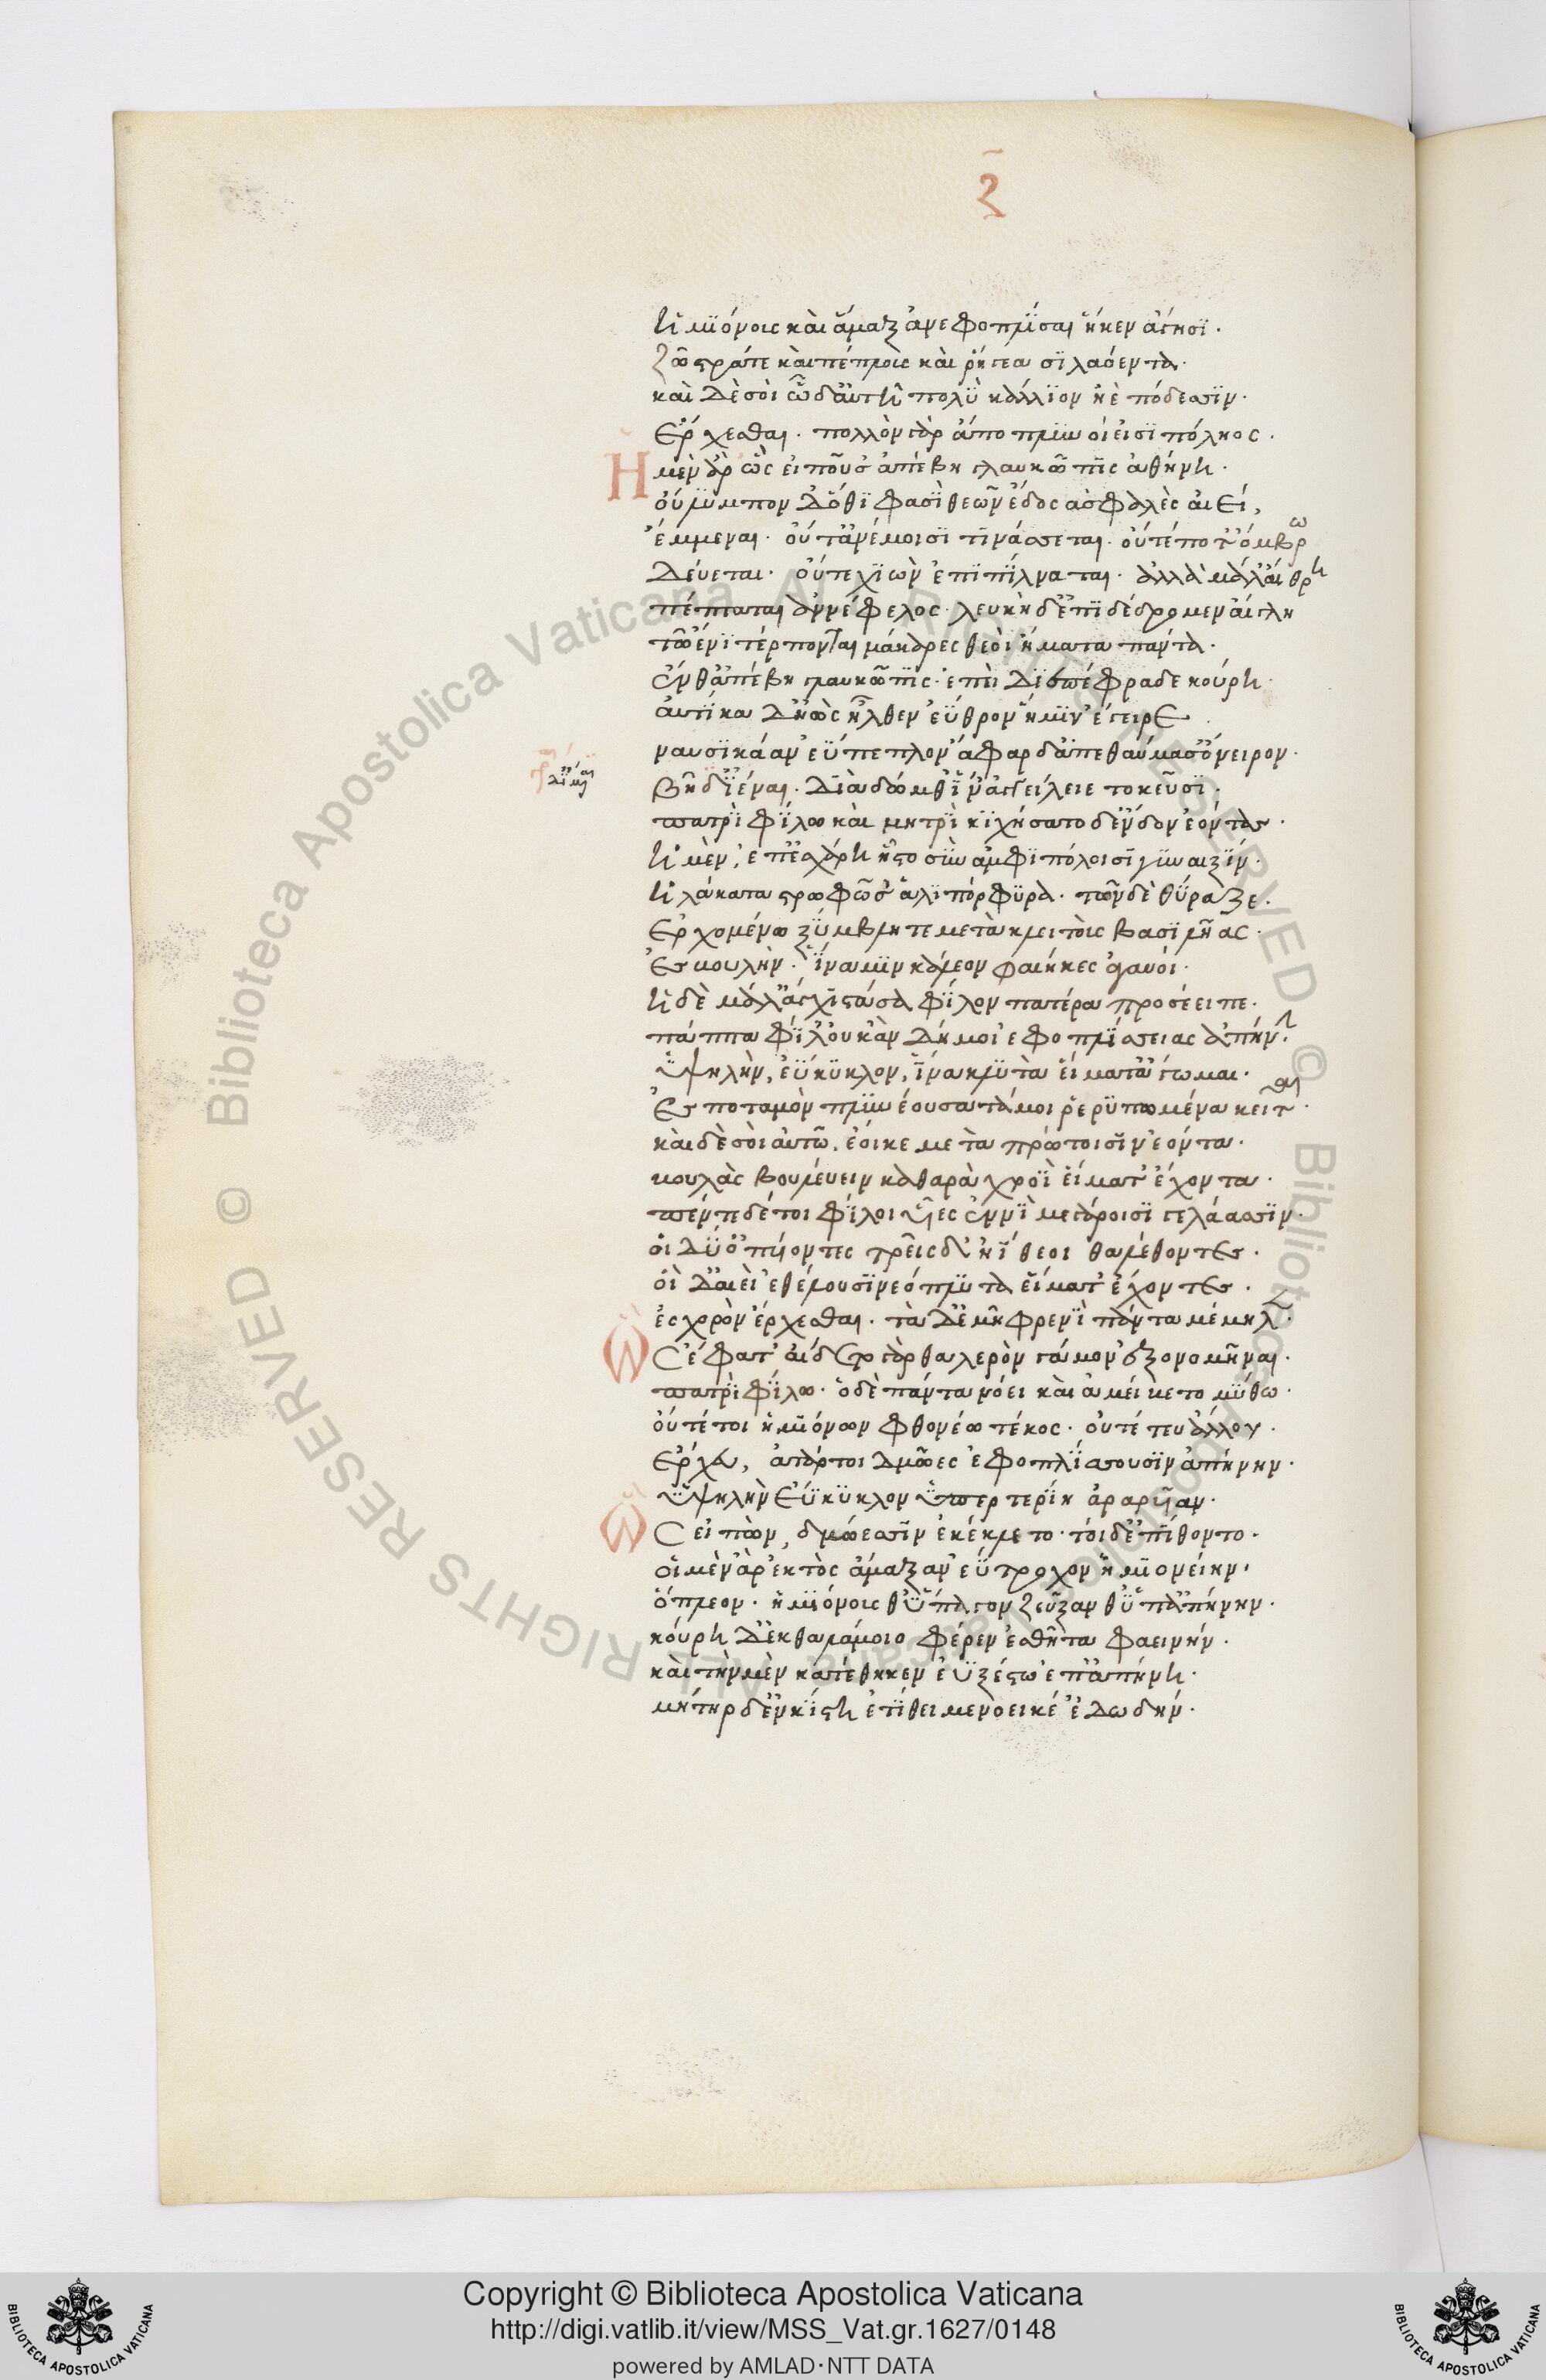 ζ
ἡμϊόνοις καὶ ἅμαξαν ἐφοπλίσαι ἥκεν ἄγησϊ·
ζῶστράτε καὶ πέπλοις καὶ ῥήγεα σϊγαλόεντα·
καὶ δὲ σοὶ ὧδ᾽ αὐτῆ πολὺ κάλλϊον ἠὲ πόδεσσϊν·
ἔρχεσθαι· πολλὸν γὰρ ἄπο πλϋνοί εἰσϊ πόληος·
Ἡ μὲν ἂρ ὣς εἰποῦσ᾽ ἀπέβη γλαυκῶπϊς ἀθήνη·
οὔλϋμπον δ᾽ ὅθϊ φασὶ θεῶν ἕδος ἀσφαλὲς αἰεί,
ἔμμεναι· οὔτ᾽ ἀνέμοισϊ τϊνάσσεται· οὔτέ ποτ᾽ ὄμβρω
δεύεται· οὔτε χϊὼν ἐπϊπίλναται· ἀλλὰ μάλ᾽ αἴθρη
πέπταται ἀννέφελος· λευκὴ δ᾽ ἐπϊδέδρομεν αἴγλη
τῶ ἔνϊ τέρπονται μάκαρες θεοὶ ἤματα πάντα·
ἔνθ᾽ ἀπέβη γλαυκῶπϊς· ἐπεὶ διεπέφραδε κούρη·
αὐτίκα δ᾽ ἠὼς ἦλθεν ἐΰθρονος ἥ μϊν ἔγειρε
ναυσϊκάαν εὔπεπλον· ἄφαρ δ᾽ ἀπεθαύμασ᾽ ὄνειρον·
βῆ δ᾽ ἰέναι· διὰ δώμαθ᾽ ἵν᾽ ἀγγείλειε τοκεῦσϊ·
πατρὶ φίλω καὶ μητρὶ κϊχήσατο δ᾽ ἔνδον ἐόντας·
ἡ μὲν ἐπ᾽ ἐσχάρη ἧστο σὺν ἀμφϊπόλοισϊ γϋναιξϊν·
ἠλάκατα στρωφῶσ᾽ ἁλϊπόρφϋρα· τῶν δὲ θύραζε·
ἐρχομένω ξύμβλητο μετὰ κλειτοὺς βασϊλῆας·
ἐς βουλὴν· ἵνα μϊν κάλεον φαίηκες ἀγαυοί·
ἡ δὲ μάλ᾽ ἄγχϊ στᾶσα φίλον πατέρα προσέειπε·
πάππα φίλ᾽ οὐκ ἂν δή μοι ἐφοπλίσσειας ἀπήνην·
ὑψηλὴν, εὔκϋκλον, ἵνα κλϋτὰ εἵματ᾽ ἄγωμαι·
ἐς ποταμὸν πλϋνέουσα τά μοι ῥερϋπωμένα κεῖται·
καὶ δὲ σοὶ αὐτῶ, ἔοικε μετὰ πρώτοισϊν ἐόντα·
βουλὰς βουλεύειν καθαρὰ χροῒ εἵματ᾽ ἔχοντα·
πέντε δέ τοι φίλοι υἷες ἐνϊ μεγάροισϊ γεγάασϊν·
οἱ δύ᾽ ὀπυίοντες τρεῖς δ᾽ ἠΐθεοι θαλέθοντες·
οἱ δ᾽ αἰεὶ ἐθέλουσϊ νεόπλϋτα εἵματ᾽ ἔχοντες·
ἐς χορὸν ἔρχεσθαι· τὰ δ᾽ ἐμῆ φρενὶ πάντα μέμηλε·
Ὣς ἔφατ᾽ αἴδετο γὰρ θαλερὸν γάμον ἐξονομῆναι·
πατρὶ φίλω· ὁ δὲ πάντα νόει καὶ ἀμείβετο μύθω·
οὔτέ τοι ἡμϊόνων φθονέω τέκος· οὔτέ τευ ἄλλου·
ἔρχευ, ἀτάρ τοι δμῶες ἐφοπλίσσουσϊν ἀπήνην·
ὑψηλὴν εὔκϋκλον ὑπερτερίη ἀραρυῖαν·
Ὣς εἰπὼν, δμώεσσϊν ἐκέκλετο· τοὶ δ᾽ ἐπίθοντο·
οἱ μὲν ἄρ᾽ ἐκτὸς ἄμαξαν ἐΰτροχον ἡμϊονείην·
ὅπλεον· ἡμϊόνους θ᾽ ὕπαγον ζεῦξαν θ᾽ ὑπ᾽ ἀπήνην·
κούρη δ᾽ ἐκ θαλάμοιο φέρεν ἐσθῆτα φαεινήν·
καὶ τὴν μὲν κατέθηκεν ἐϋξέστω ἐπ᾽ ἀπήνη·
μήτηρ δ᾽ ἐν κίστη ἐτίθει μενοεικέ᾽ ἐδωδήν·
Copyright © Biblioteca Apostolica Vaticana
http://digi.vatlib.it/view/MSS_Vat.gr.1627/0148
powered by AMLAD·NTT DATA